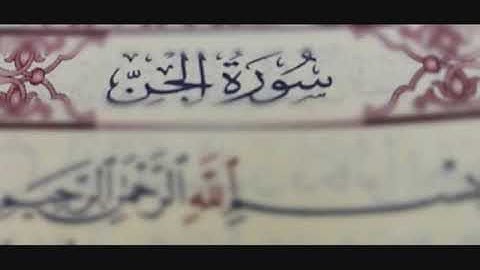 سُورَةُ الجِنِّ
بِسْمِ اللَّهِ الرَّحْمَٰنِ الرَّحِيمِ